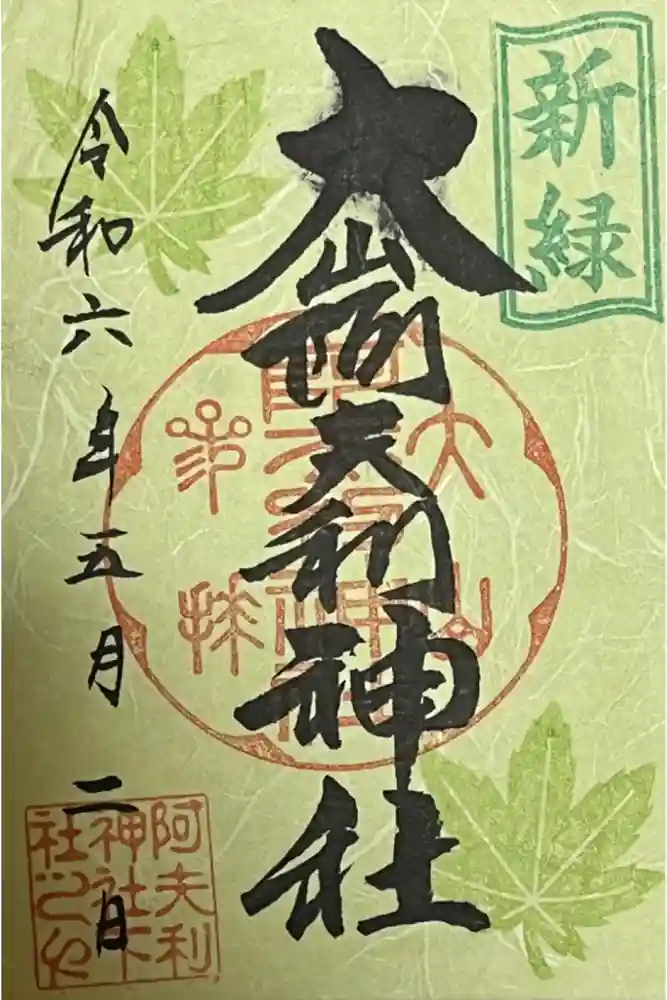 新緑
大山阿夫利神社
令和六年五月二日
阿夫利
神社下
社之印